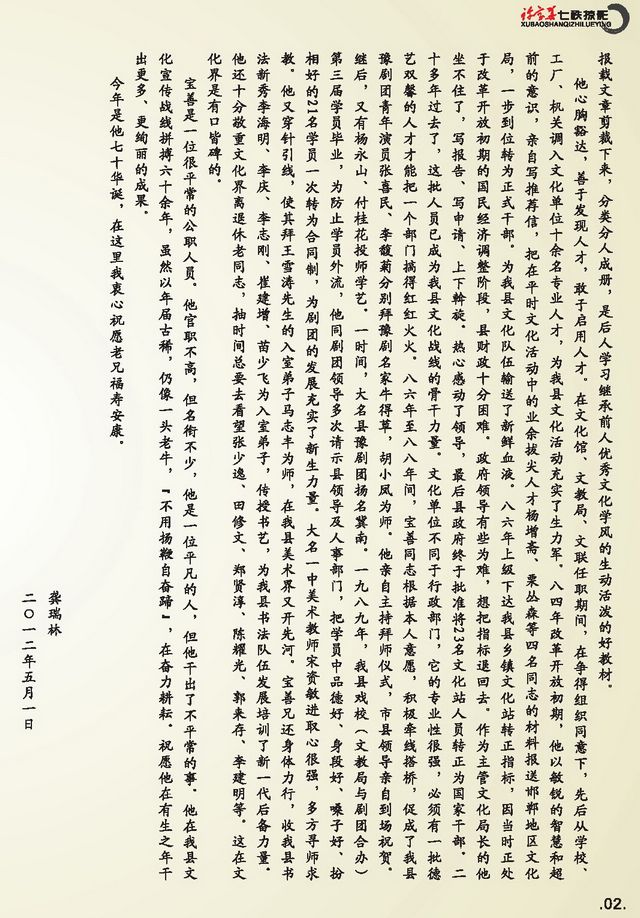 许宝善七秩掠影
XUBAOSHANQIZHILUEYING
报载文章剪裁下来，分类分人成册，是后人学习继承前人优秀文化学风的生动活泼的好教材。
他心胸豁达，善于发现人才，敢于启用人才。在文化馆、文教局、文联任职期间，在争得组织同意下，先后从学校、
工厂、机关调入文化单位十余名专业人才，为我县文化活动充实了生力军。八四年改革开放初期，他以敏锐的智慧和超
前的意识，亲自写推荐信，把在平时文化活动中的业余拔尖人才杨增斋、栗丛森等四名同志的材料报送邯郸地区文化
局，一步到位转为正式干部。为我县文化队伍输送了新鲜血液。八六年上级下达我县乡镇文化站转正指标，因当时正处
于改革开放初期的国民经济调整阶段，县财政十分困难。政府领导有些为难，想把指标退回去。作为主管文化局长的他
坐不住了，写报告、写申请、上下斡旋。热心感动了领导，最后县政府终于批准将23名文化站人员转正为国家干部。二
十多年过去了，这批人员已成为我县文化战线的骨干力量。文化单位不同于行政部门，它的专业性很强，必须有一批德
艺双馨的人才才能把一个部门搞得红红火火。八六年至八八年间，宝善同志根据本人意愿，积极牵线搭桥，促成了我县
豫剧团青年演员张喜民、李馥菊分别拜豫剧名家牛得草，胡小凤为师。他亲自主持拜师仪式，市县领导亲自到场祝贺。
继后，又有杨永山、付桂花投师学艺。一时间，大名县豫剧团扬名冀南。一九八九年，我县戏校（文教局与剧团合办）
第三届学员毕业，为防止学员外流，他同剧团领导多次请示县领导及人事部门，把学员中品德好、身段好、嗓子好、扮
相好的21名学员一次转为合同制，为剧团的发展充实了新生力量。大名一中美术教师宋资敏进取心很强，多方寻师求
教。他又穿针引线，使其拜王雪涛先生的入室弟子马志丰为师，在我县美术界又开先河。宝善兄还身体力行，收我县书
法新秀李海明、李庆、李志刚、崔建增、苗少飞为入室弟子，传授书艺，为我县书法队伍发展培训了新一代后备力量。
他还十分敬重文化界离退休老同志，抽时间总要去看望张少逸、田修文、郑贤淳、陈耀光、郭来存、李建明等。这在文
化界是有口皆碑的。
宝善是一位很平常的公职人员。他官职不高，但名衔不少，他是一位平凡的人，但他干出了不平常的事。他在我县文
化宣传战线拼搏六十余年，虽然以年届古稀，仍像一头老牛，“不用扬鞭自奋蹄”，在奋力耕耘。祝愿他在有生之年干
出更多、更绚丽的成果。
今年是他七十华诞，在这里我衷心祝愿老兄福寿安康。
龚瑞林
二〇一二年五月一日
.02.